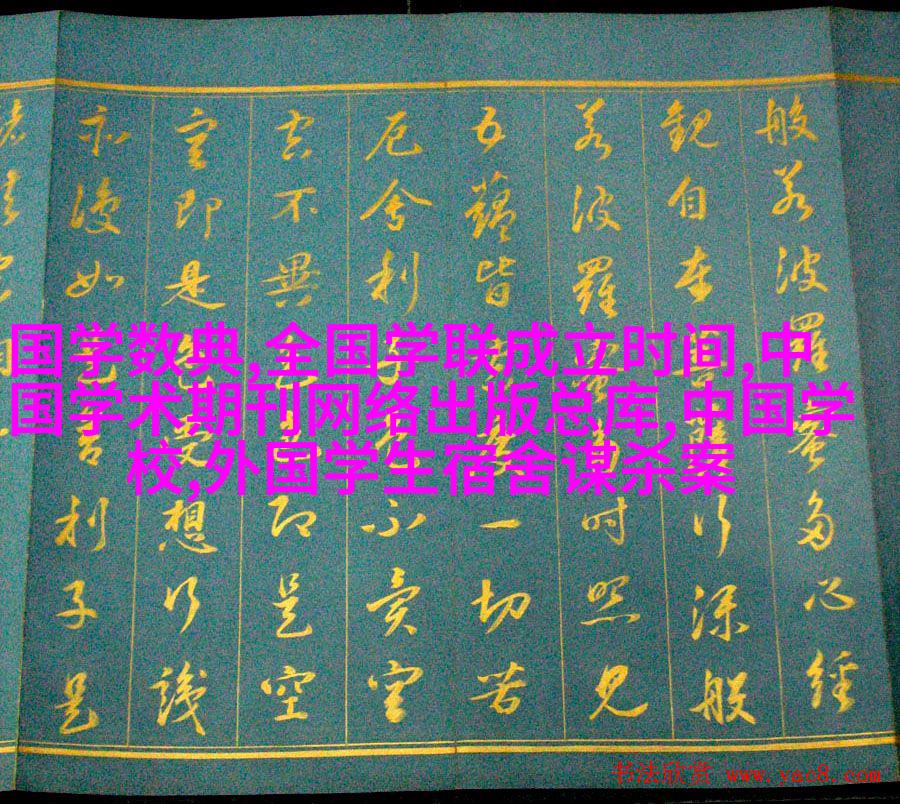 般若波羅蜜多心經
觀自在菩薩行深般
若波羅蜜多時照見
五蘊皆空度一切苦
厄舍利子色不異空
空不異色色即是空
空即是色受想行識
亦復如是舍利子是
国学数典,全国学联成立时间,中
国学术期刊网络出版总库,中国学
校,外国学生宿舍谋杀案
书法欣赏 www.yac8.com